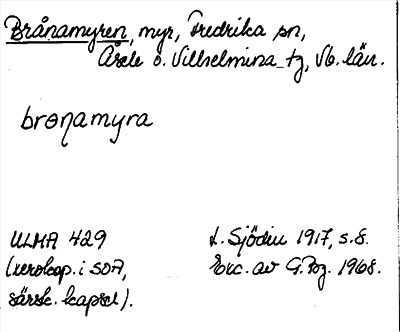 Brånamyren, myr, Fredrika sn,
Åsele o. Vilhelmina tg, Vb. län.
brɵnamyra
ULMA 429
L. Sjödin 1917, s. 8.
(xerokop. i SOA,
Exc. av G. Pg. 1968.
särsk. kapsel).